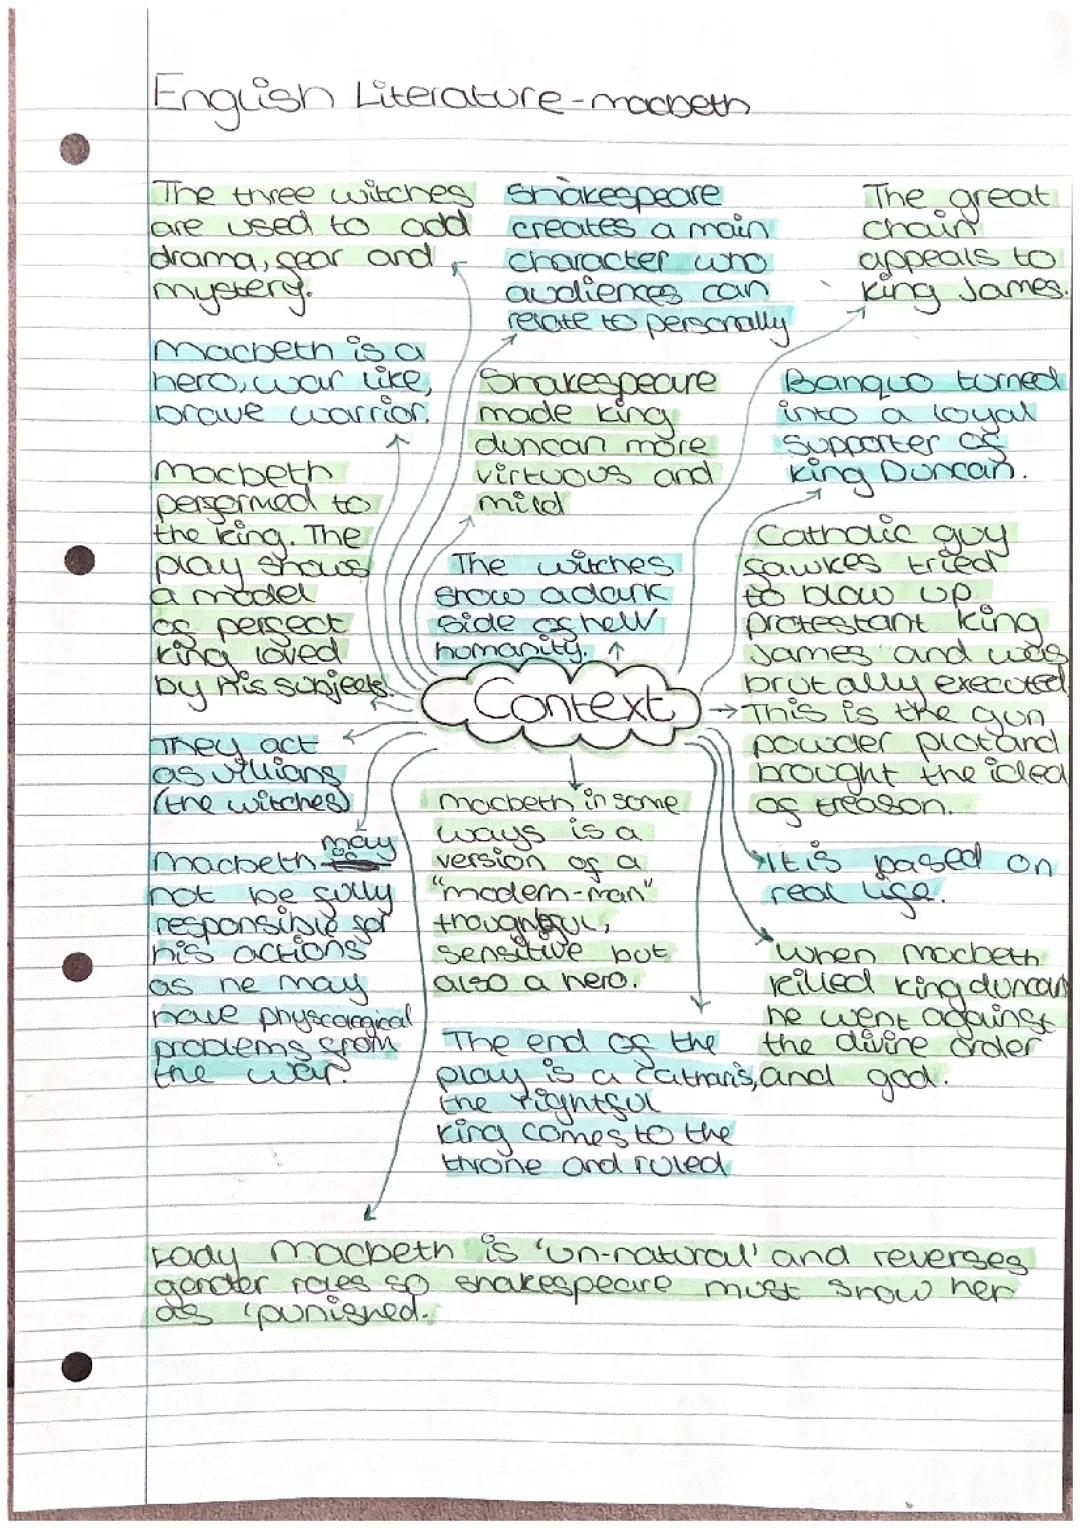 English Literature-macbeth
The three witches
are used to add
drama, fear and
mystery.
Shakespeare
creates a main
character who
audiences can
relate to personally
The great
chain
appeals to
king James.
Macbeth is a
hero, war like,
brave warrior.
Shakespeare
made king
duncan more
virtuous and
mild
Banquo turned
into a loyal
supporter of
king Duncan.
Macbeth
performed to
the king. The
play shows
a model
of perfect
king loved
by his subjects.
The witches
show a dark
side of hell
humanity.
Catholic guy
fawkes tried
to blow up
protestant king
James and was
brutally executed
This is the gun
powder plot and
brought the idea
of treason.
Context
They act
as villians
(the witches)
Macbeth may
not be fully
responsible for
his actions
as he may
have physcological
problems from
the war.
Macbeth in some
ways is a
version of a
"modern-man"
thoughtful,
sensitive but
also a hero.
It is based on
real life.
When Macbeth
killed king duncan
he went against
the divine order
and god.
The end of the
play is a catharis,
the rightful
king comes to the
throne and ruled
Lady Macbeth is 'un-natural' and reverses
gender roles so shakespeare must show her
as 'punished.